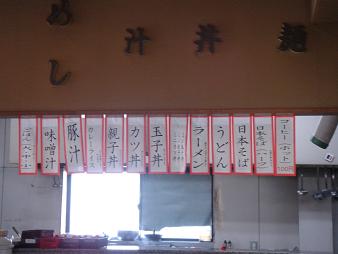 めし
汁
丼
麺
ごはん(大・中・小)
味噌汁
豚汁
カレーライス
親子丼
カツ丼
玉子丼
ラーメン
うどん
日本そば
日本そば(ハーフ)
コーヒー(ホット)
100円